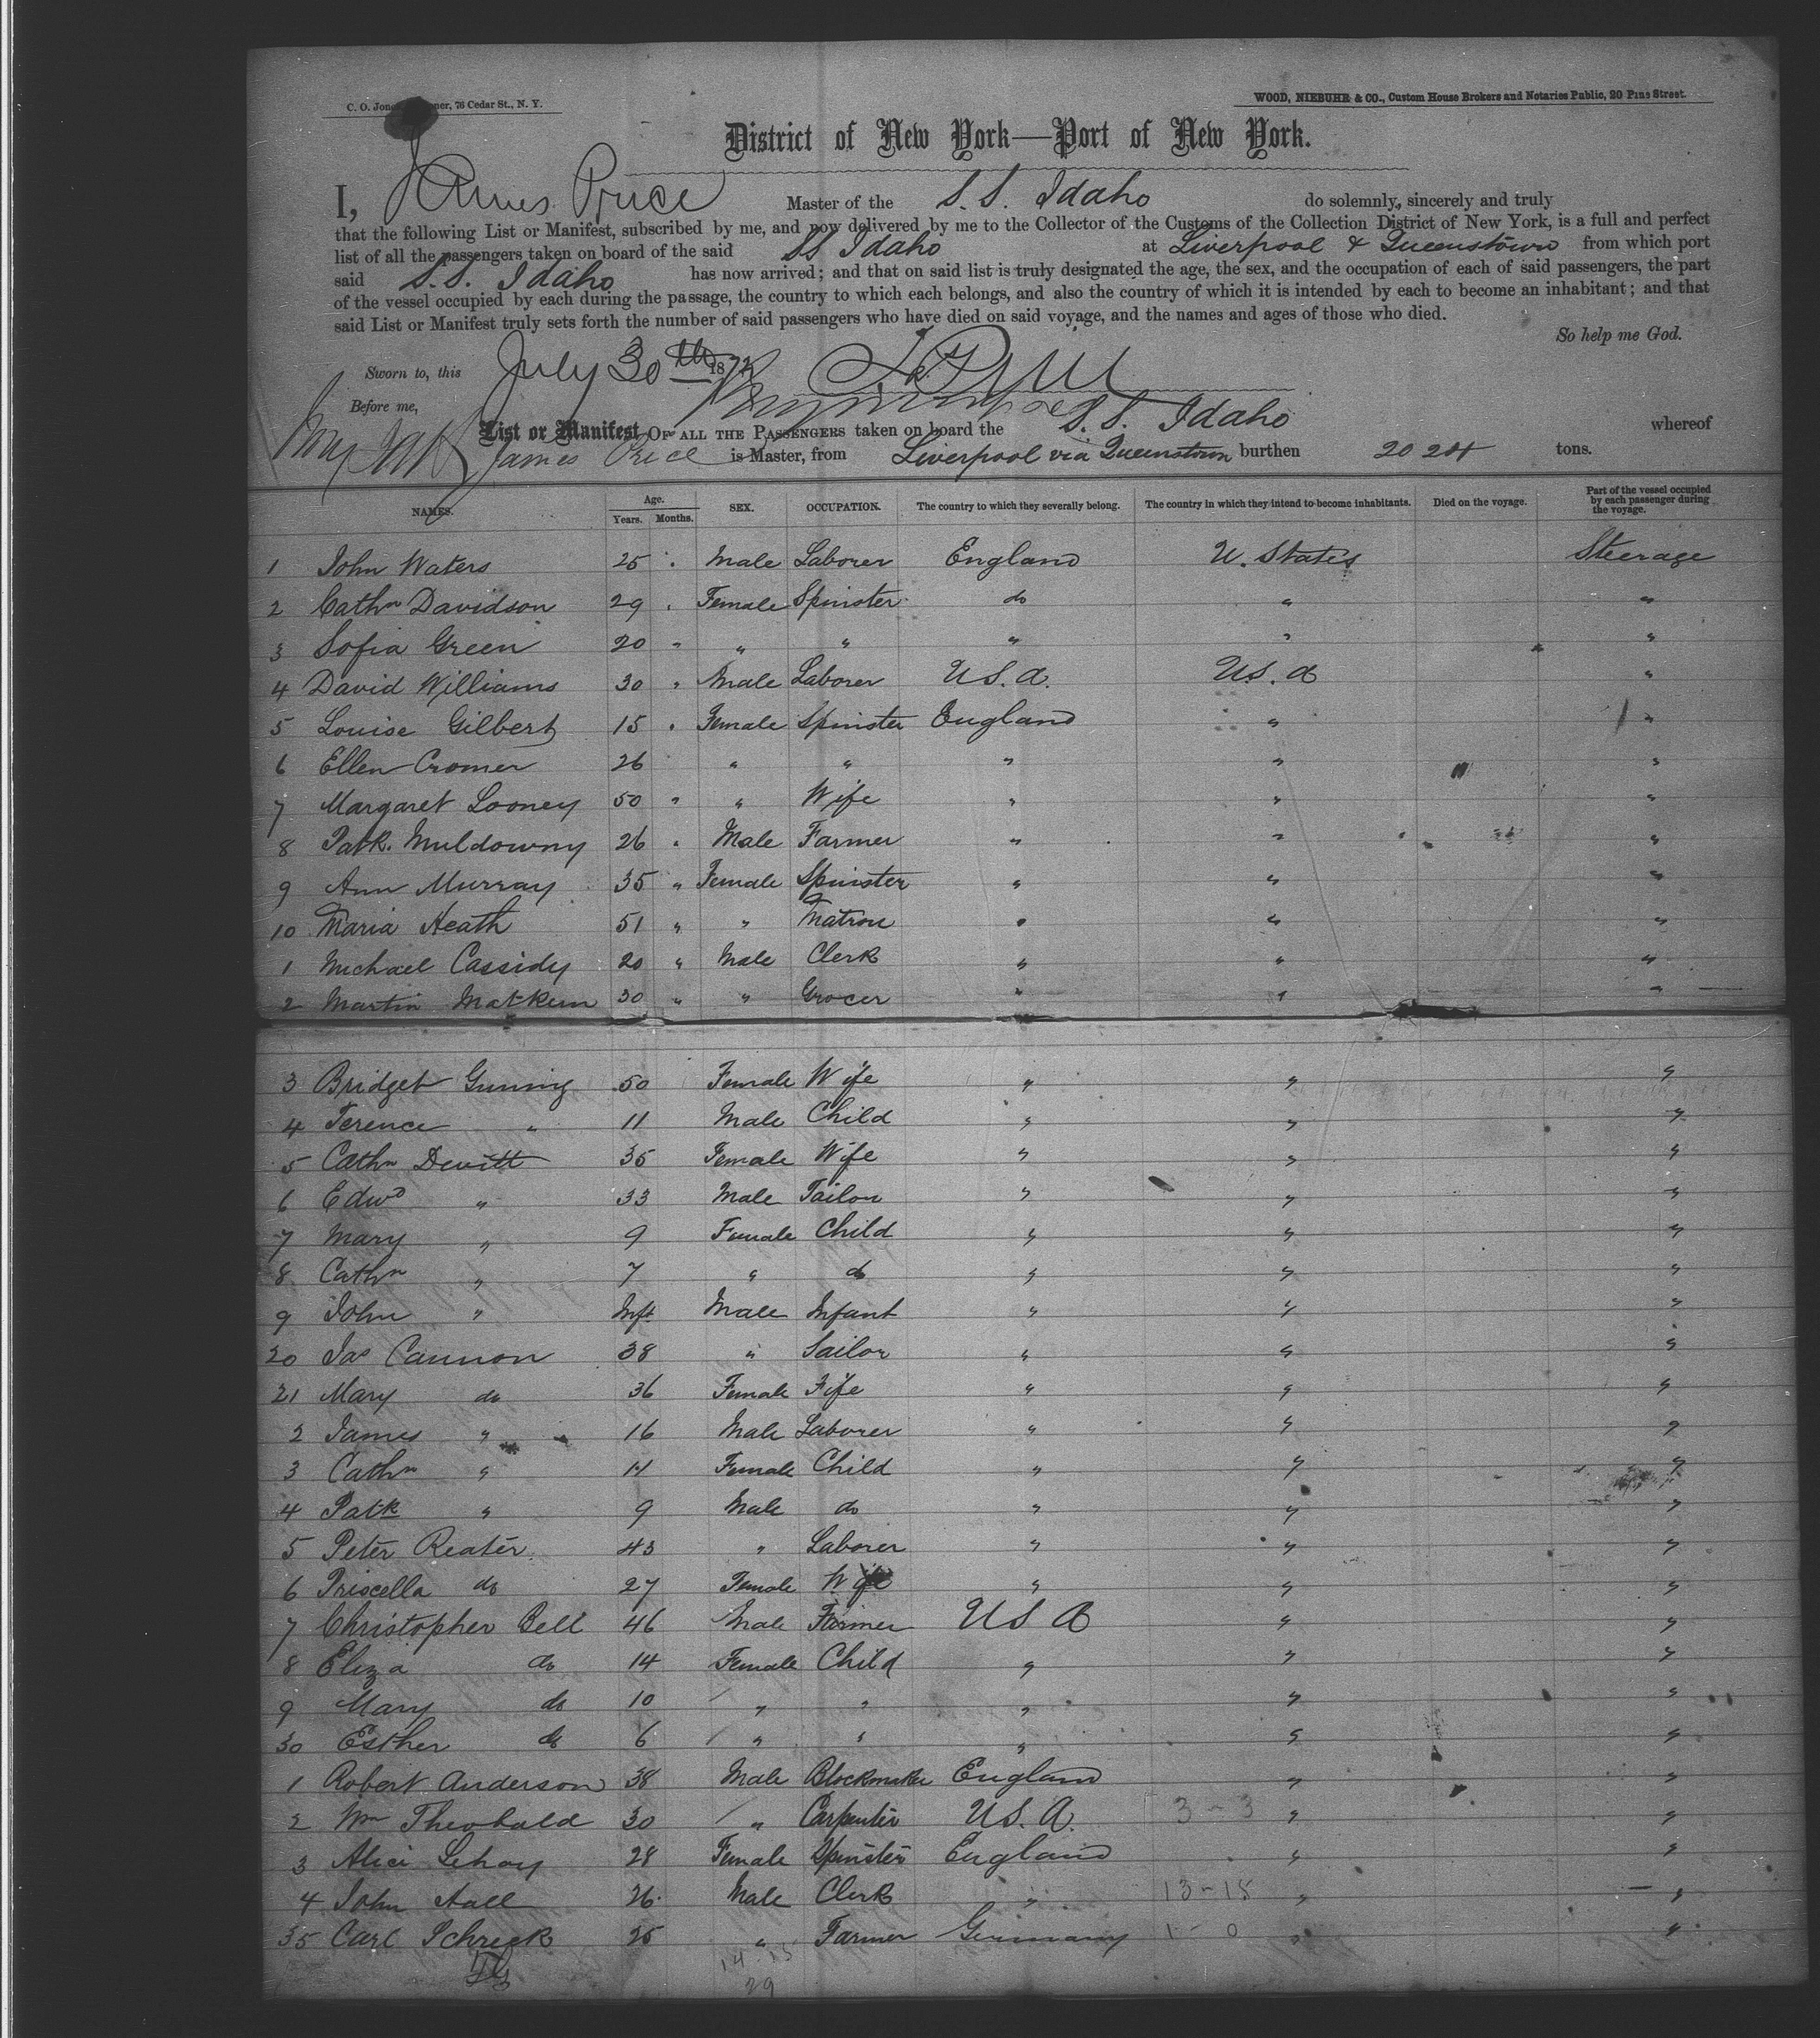 C. O. Jones, 76 Cedar St., N. Y.
WOOD, NIEBUHR & CO., Custom House Brokers and Notaries Public, 20 Pine Street.
District of New York—Port of New York.
I, James Price Master of the S.S. Idaho do solemnly, sincerely and truly
that the following List or Manifest, subscribed by me, and now delivered by me to the Collector of the Customs of the Collection District of New York, is a full and perfect
list of all the passengers taken on board of the said SS Idaho at Liverpool & Queenstown from which port
said S.S. Idaho has now arrived; and that on said list is truly designated the age, the sex, and the occupation of each of said passengers, the part
of the vessel occupied by each during the passage, the country to which each belongs, and also the country of which it is intended by each to become an inhabitant; and that
said List or Manifest truly sets forth the number of said passengers who have died on said voyage, and the names and ages of those who died.
So help me God.
Sworn to, this July 30th 187
Before me,
List or Manifest OF ALL THE PASSENGERS taken on board the S.S. Idaho whereof
James Price is Master, from Liverpool via Queenstown burthen 2024 tons.
NAMES. Age. Years. Months. SEX. OCCUPATION. The country to which they severally belong. The country in which they intend to become inhabitants. Died on the voyage. Part of the vessel occupied by each passenger during the voyage.
1 John Waters 25 " Male Laborer England U. States Steerage
2 Cathn Davidson 29 " Female Spinster do " "
3 Sofia Green 20 " " " " " "
4 David Williams 30 " Male Laborer U.S.A. U.S.A "
5 Louise Gilbert 15 " Female Spinster England " "
6 Ellen Cromer 26 " " " " "
7 Margaret Looney 50 " " Wife " " "
8 Patk. Muldowny 26 " Male Farmer " " "
9 Ann Murray 35 " Female Spinster " " "
10 Maria Heath 51 " " Matron " " "
1 Michael Cassidy 20 " Male Clerk " " "
2 Martin 30 " " Grocer " " "
3 Bridget Guning 50 Female Wife " " "
4 Terence " 11 Male Child " " "
5 Cathn Devitt 35 Female Wife " " "
6 Edwd " 33 Male Tailor " " "
7 Mary " 9 Female Child " " "
8 Cathn " 7 " do " " "
9 John " Inft Male Infant " " "
20 Jas Cannon 38 " Sailor " " "
21 Mary do 36 Female Fife " " "
2 James " 16 Male Laborer " " "
3 Cathn " 11 Female Child " " "
4 Patk " 9 Male do " " "
5 Peter Reater 43 " Laborer " " "
6 Priscella do 27 Female Wife " " "
7 Christopher Bell 46 Male Farmer U S A " "
8 Eliza do 14 Female Child " " "
9 Mary do 10 " " " " "
30 Esther do 6 " " " " "
1 Robert Anderson 38 Male Blockmaker England " "
2 Wm Theobald 30 " Carpenter U.S.A. 3 - 3 " "
3 Alice 28 Female Spinster England " "
4 John Hall 26 Male Clerk " 13 - 15 " "
35 Carl Schreck 25 " Farmer Germany 1 - 0 " "
14 15
29